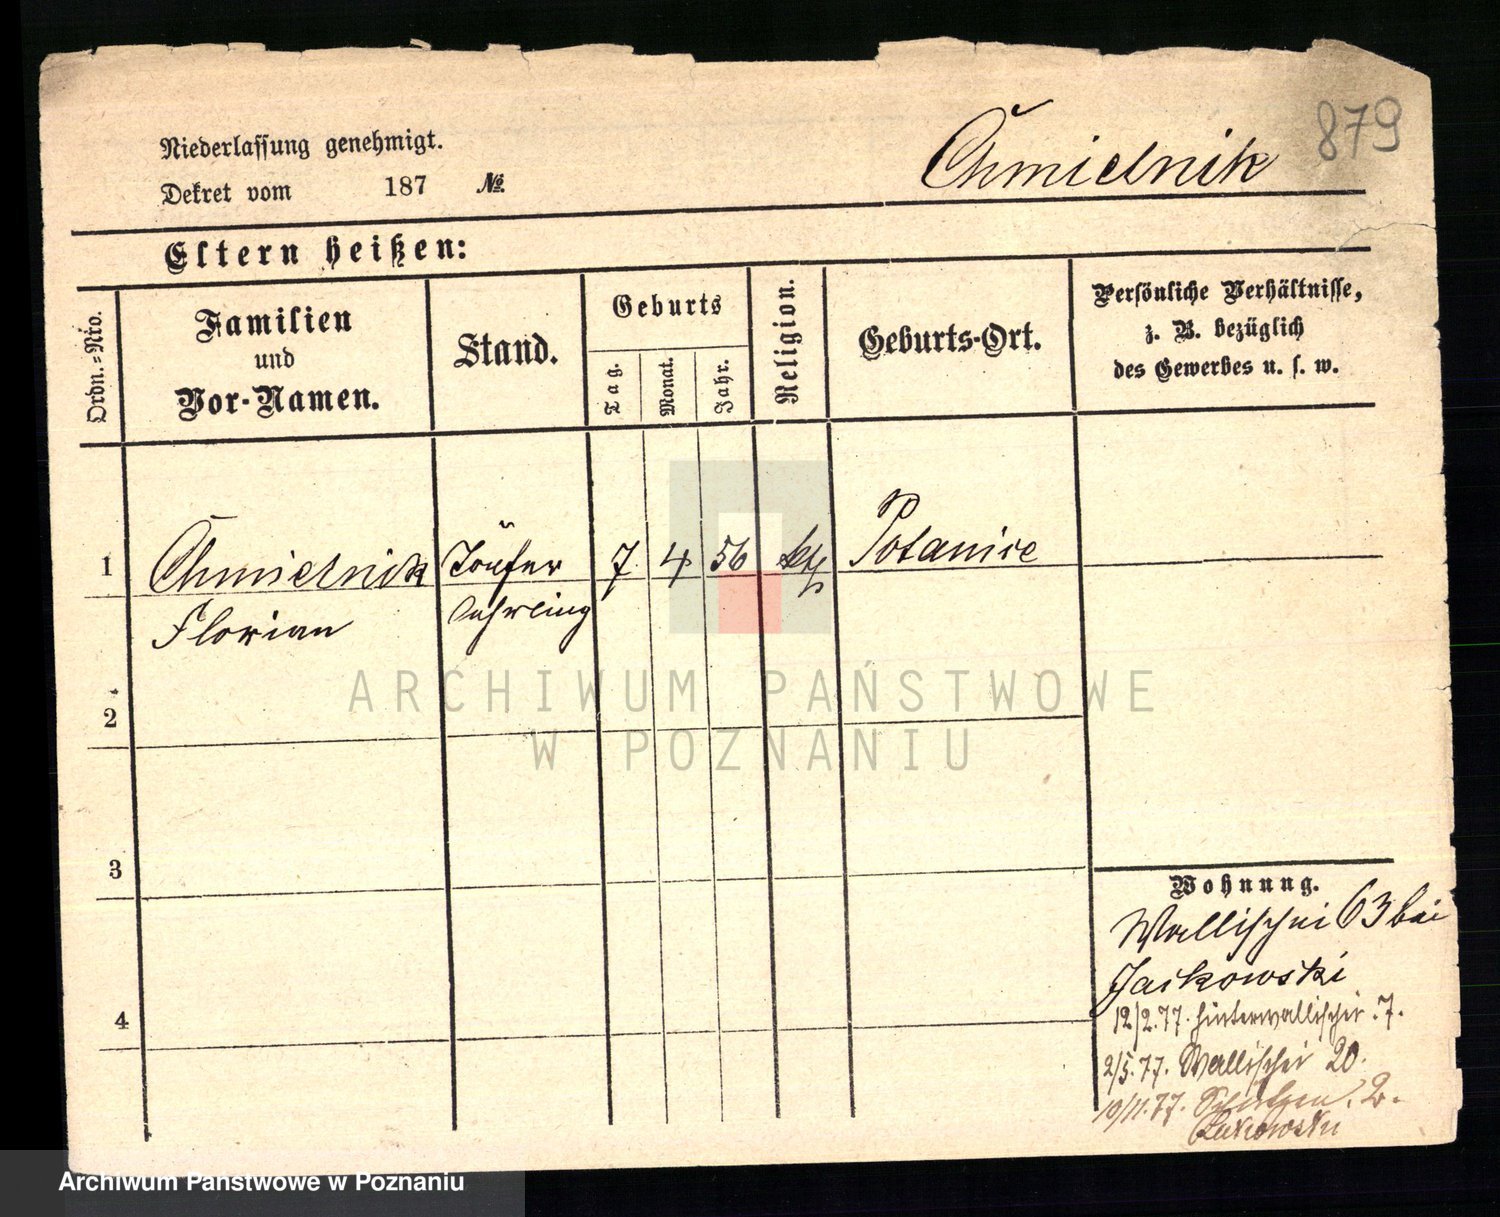 879
Chmielnik
Niederlassung genehmigt.
Dekret vom 187 №
Eltern heißen:
Ordn.=No.
Familien
und
Vor-Namen.
Stand.
Geburts
Tag.
Monat.
Jahr.
Religion.
Geburts-Ort.
Persönliche Verhältnisse,
z. B. bezüglich
des Gewerbes u. s. w.
1 Chmielnik Töpfer 7 4 56 kth Potanice
Florian Lehrling
2
3
4
Wohnung.
Wallischei 63 bei
Jaskowski
12/2.77. Hinterwallischei. 7.
2/5.77. Wallischei 20.
10/11.77. 2.
ARCHIWUM PAŃSTWOWE
W POZNANIU
Archiwum Państwowe w Poznaniu